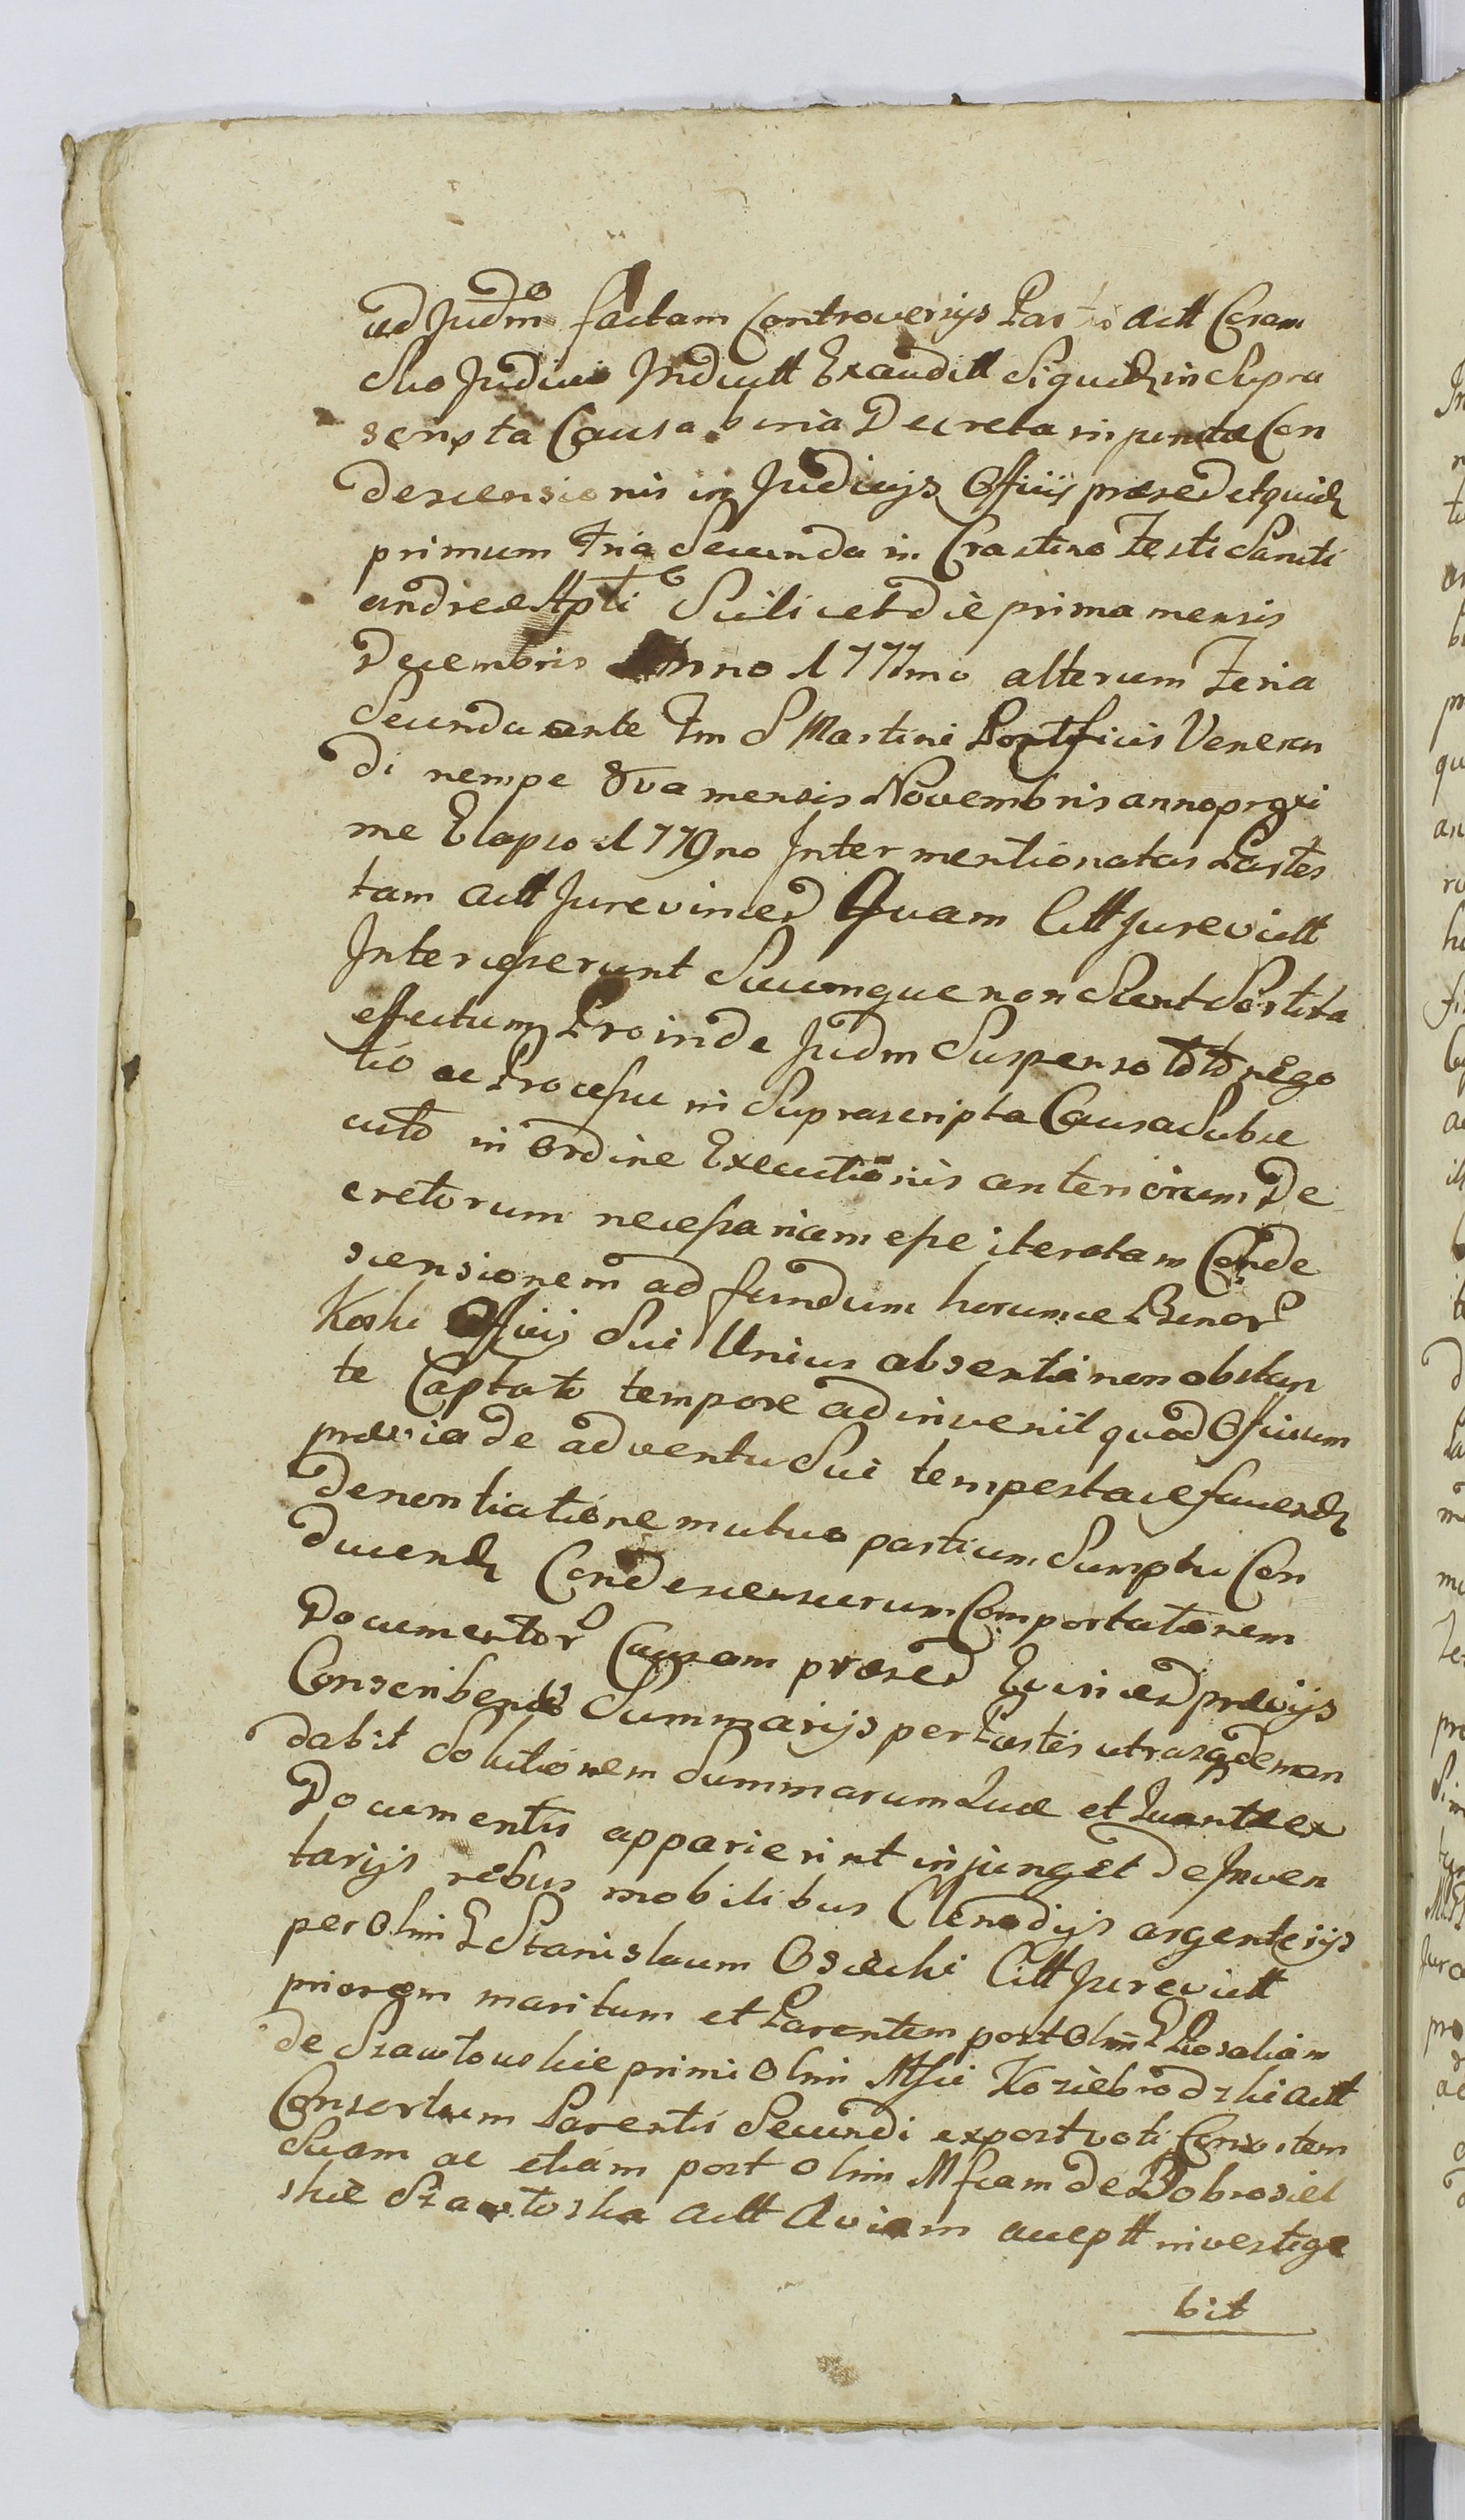 ad Judm factam Controversijs Partis actt Coram
Suo Judicio Inductt Exauditt Siquidem in Supra
scripta Causa bina Decreta in puncto Con
descensionis in Judicijs Officij præsed et quidem
primum Fria Secunda in Crastino Festi Sancti
andreæ Apli Scilicet die prima mensis
Decembris Anno 1777mo alterum Feria
Secunda ante Fm S Martini Pontificis Veneran
di nempe 8va mensis Novembris anno proxi
me Elapso 1779no Inter mentionatas Partes
tam actt Jurevincen Quam Citt jurevictt
Intercesserunt Suumque non Sunt Sortita
effectum Proinde Judm Suspenso toto nego
tio ac Processu in Suprascripta Causa Subse
cuto in ordine Executionis anteriorum De
cretorum necessariam esse iteratam Conde
scensionem ad fundum horumce Bonor
Koski Officij Sui Unius absentia non obstan
te Captato tempore adinvenit quod Officium
prævia de adventu Sui tempestive faciend
denontiatione mutuo partium Sumptu Con
ducend Condescensurum Comportationem
Documentor Causam præsed Evincen prævijs
Conscribendis Summarijs per Partes utrasq deman
dabit Solutionem Summarum Quæ et Quantæ ex
Documentis apparierint injunget De Inven
tarijs rebus mobilibus Clenodijs argenterijs
per Olim G Stanislaum Osiecki Citt Jurevictt
priorem maritum et Parentem post Olim G Rosaliam
de Szawłowskie primi Olim Mfici Koziebrodzki actt
Consortem Parentis Secundi expost voti Consortem
Suam ac etiam post olim Mficam de Dobrosiel
skie Szawłoska actt Aviam acceptt investiga
bit